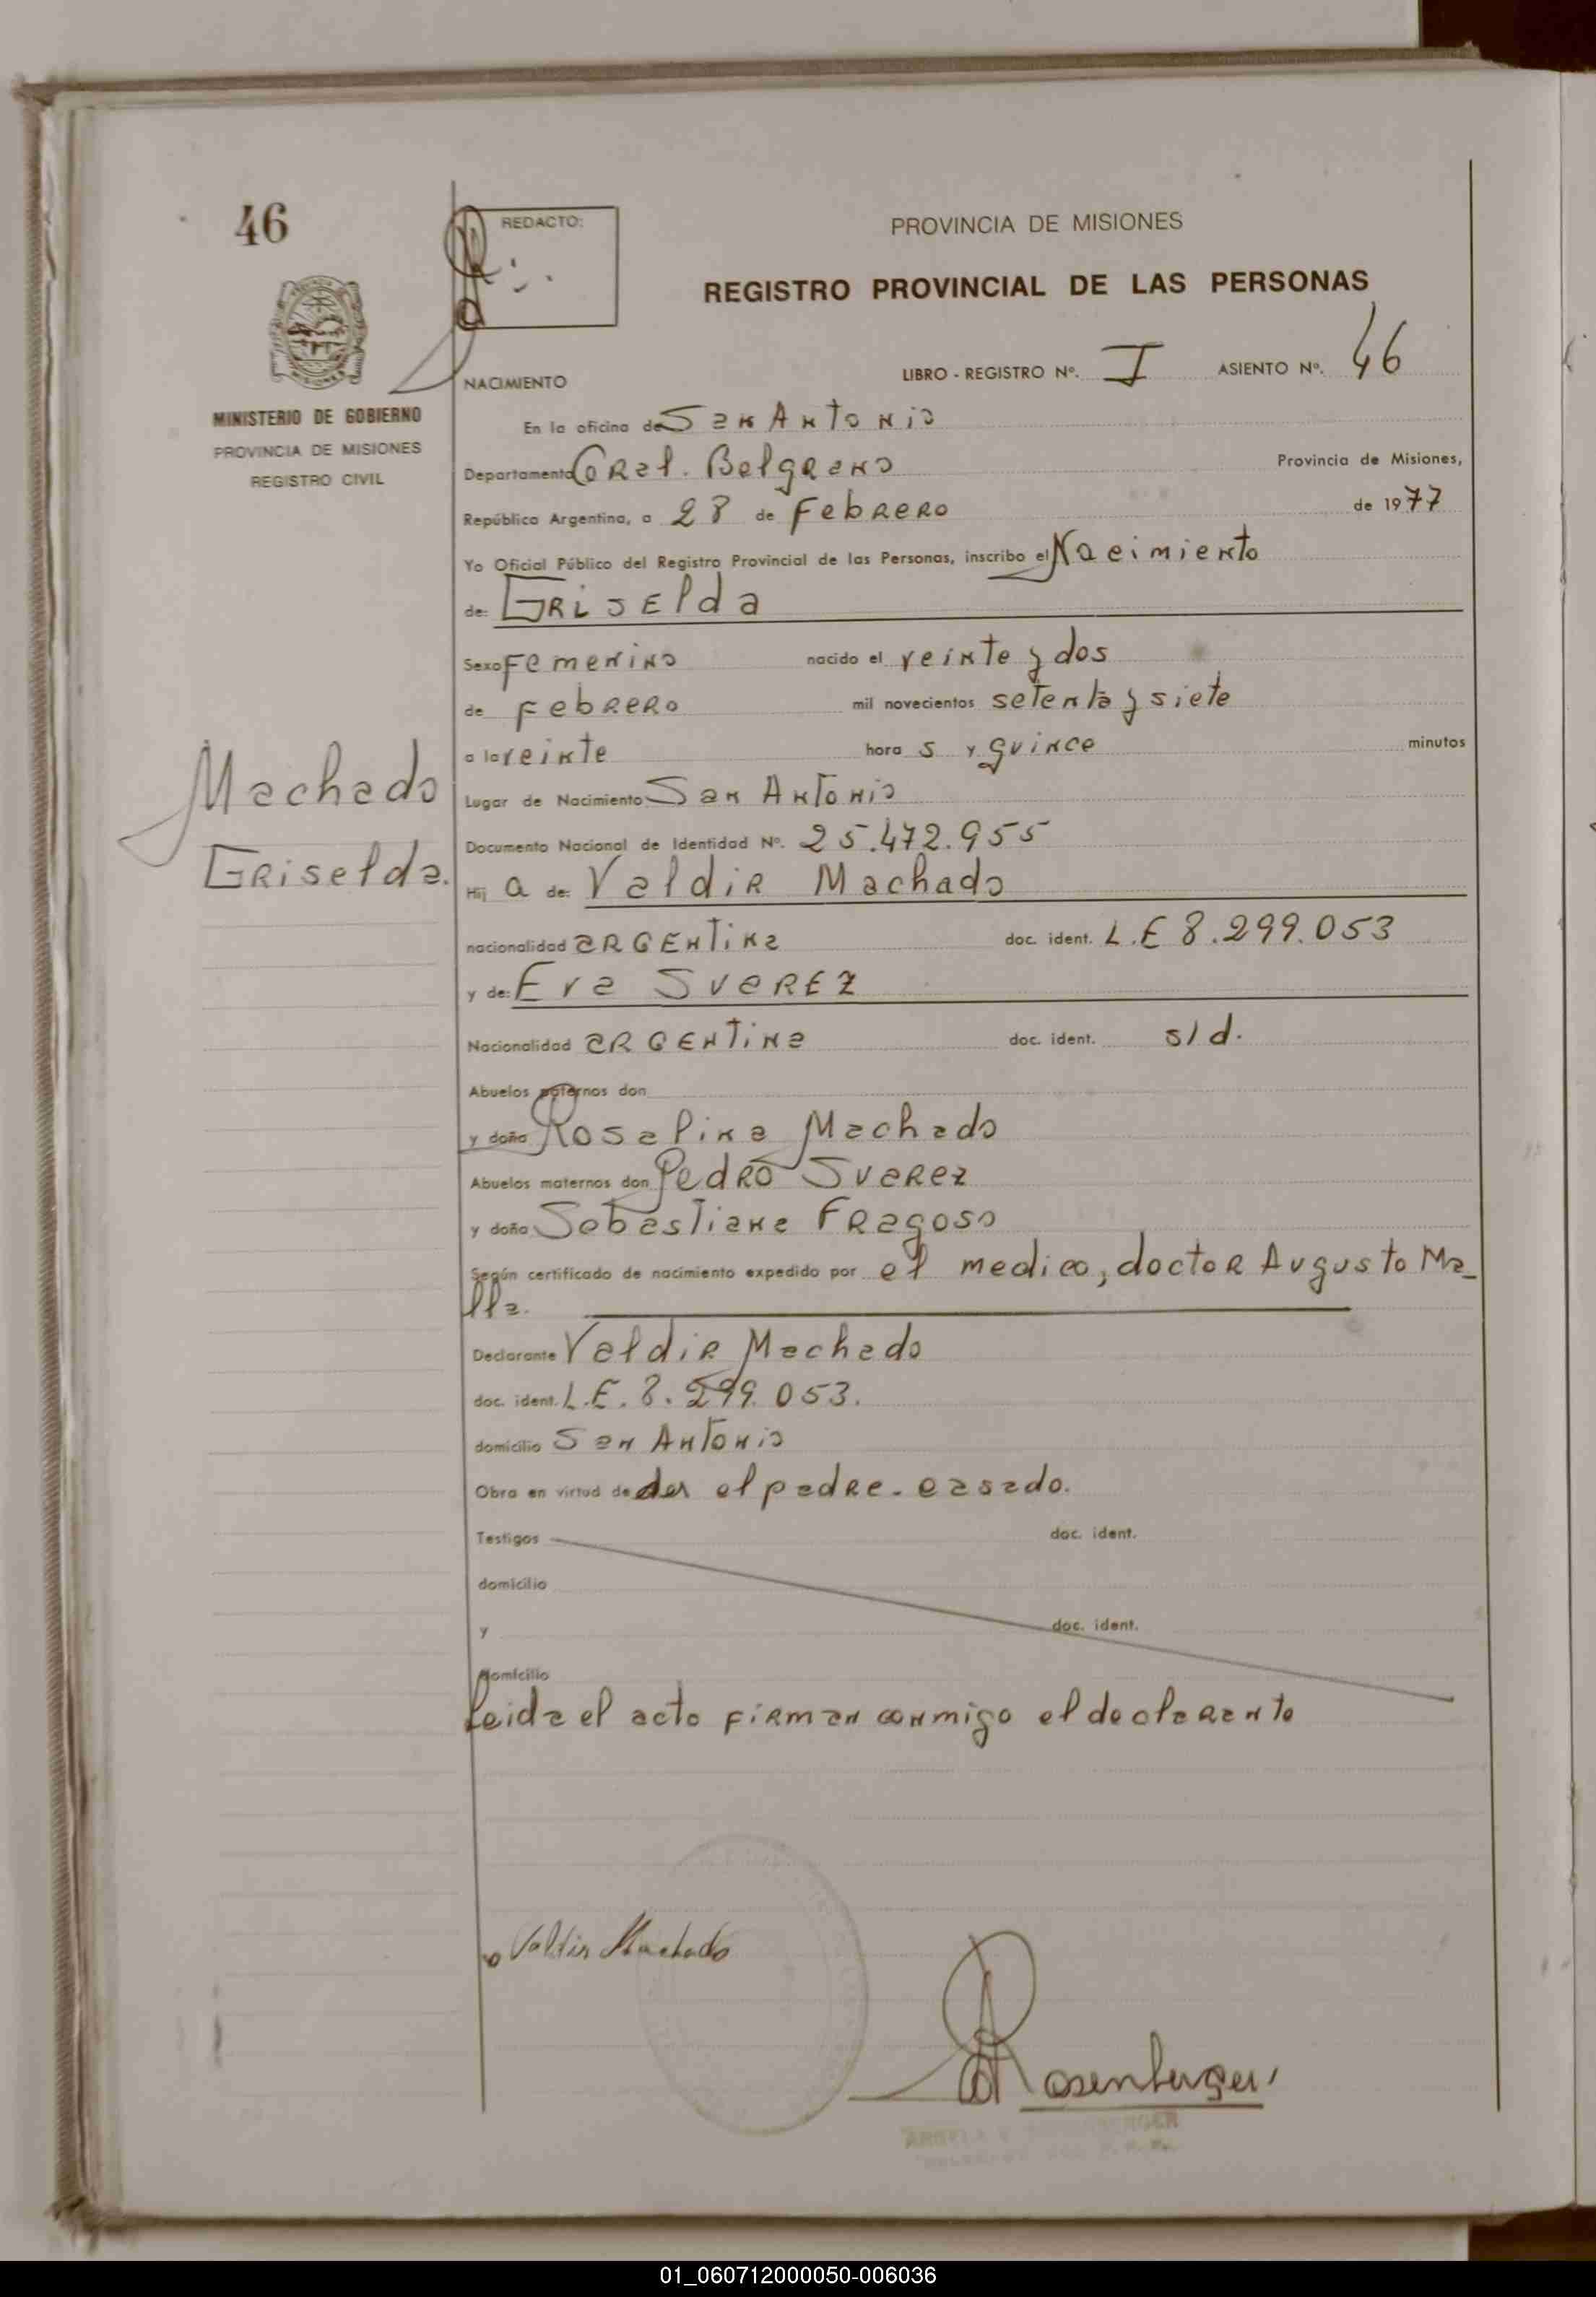 46
REDACTO:
PROVINCIA DE MISIONES
REGISTRO PROVINCIAL DE LAS PERSONAS
MISIONES
MINISTERIO DE GOBIERNO
PROVINCIA DE MISIONES
REGISTRO CIVIL
NACIMIENTO
LIBRO - REGISTRO Nº. I ASIENTO Nº. 46
En la oficina de San Antonio
Departamento Gral. Belgrano Provincia de Misiones,
República Argentina, a 28 de Febrero de 1977
Yo Oficial Público del Registro Provincial de las Personas, inscribo el Nacimiento
de: Griselda
Sexo Femenino nacido el veinte y dos
de Febrero mil novecientos setenta y siete
a la veinte hora s y quince minutos
Machado
Griselda.
Lugar de Nacimiento San Antonio
Documento Nacional de Identidad Nº. 25.472.955
Hij a de: Valdir Machado
nacionalidad argentina doc. ident. L.E 8.299.053
y de: Eva Suarez
Nacionalidad argentina doc. ident. s/d.
Abuelos paternos don
y doña Rosalina Machado
Abuelos maternos don Pedro Suarez
y doña Sebastiana Fragoso
Según certificado de nacimiento expedido por el medico, doctor Augusto Ma_
lla.
Declarante Valdir Machado
doc. ident. L.E. 8.299.053.
domicilio San Antonio
Obra en virtud de el padre. casado.
Testigos doc. ident.
domicilio
y doc. ident.
domicilio
Leida el acto firman conmigo el declarante
Valdir Machado
Rosenberger
01_060712000050-006036